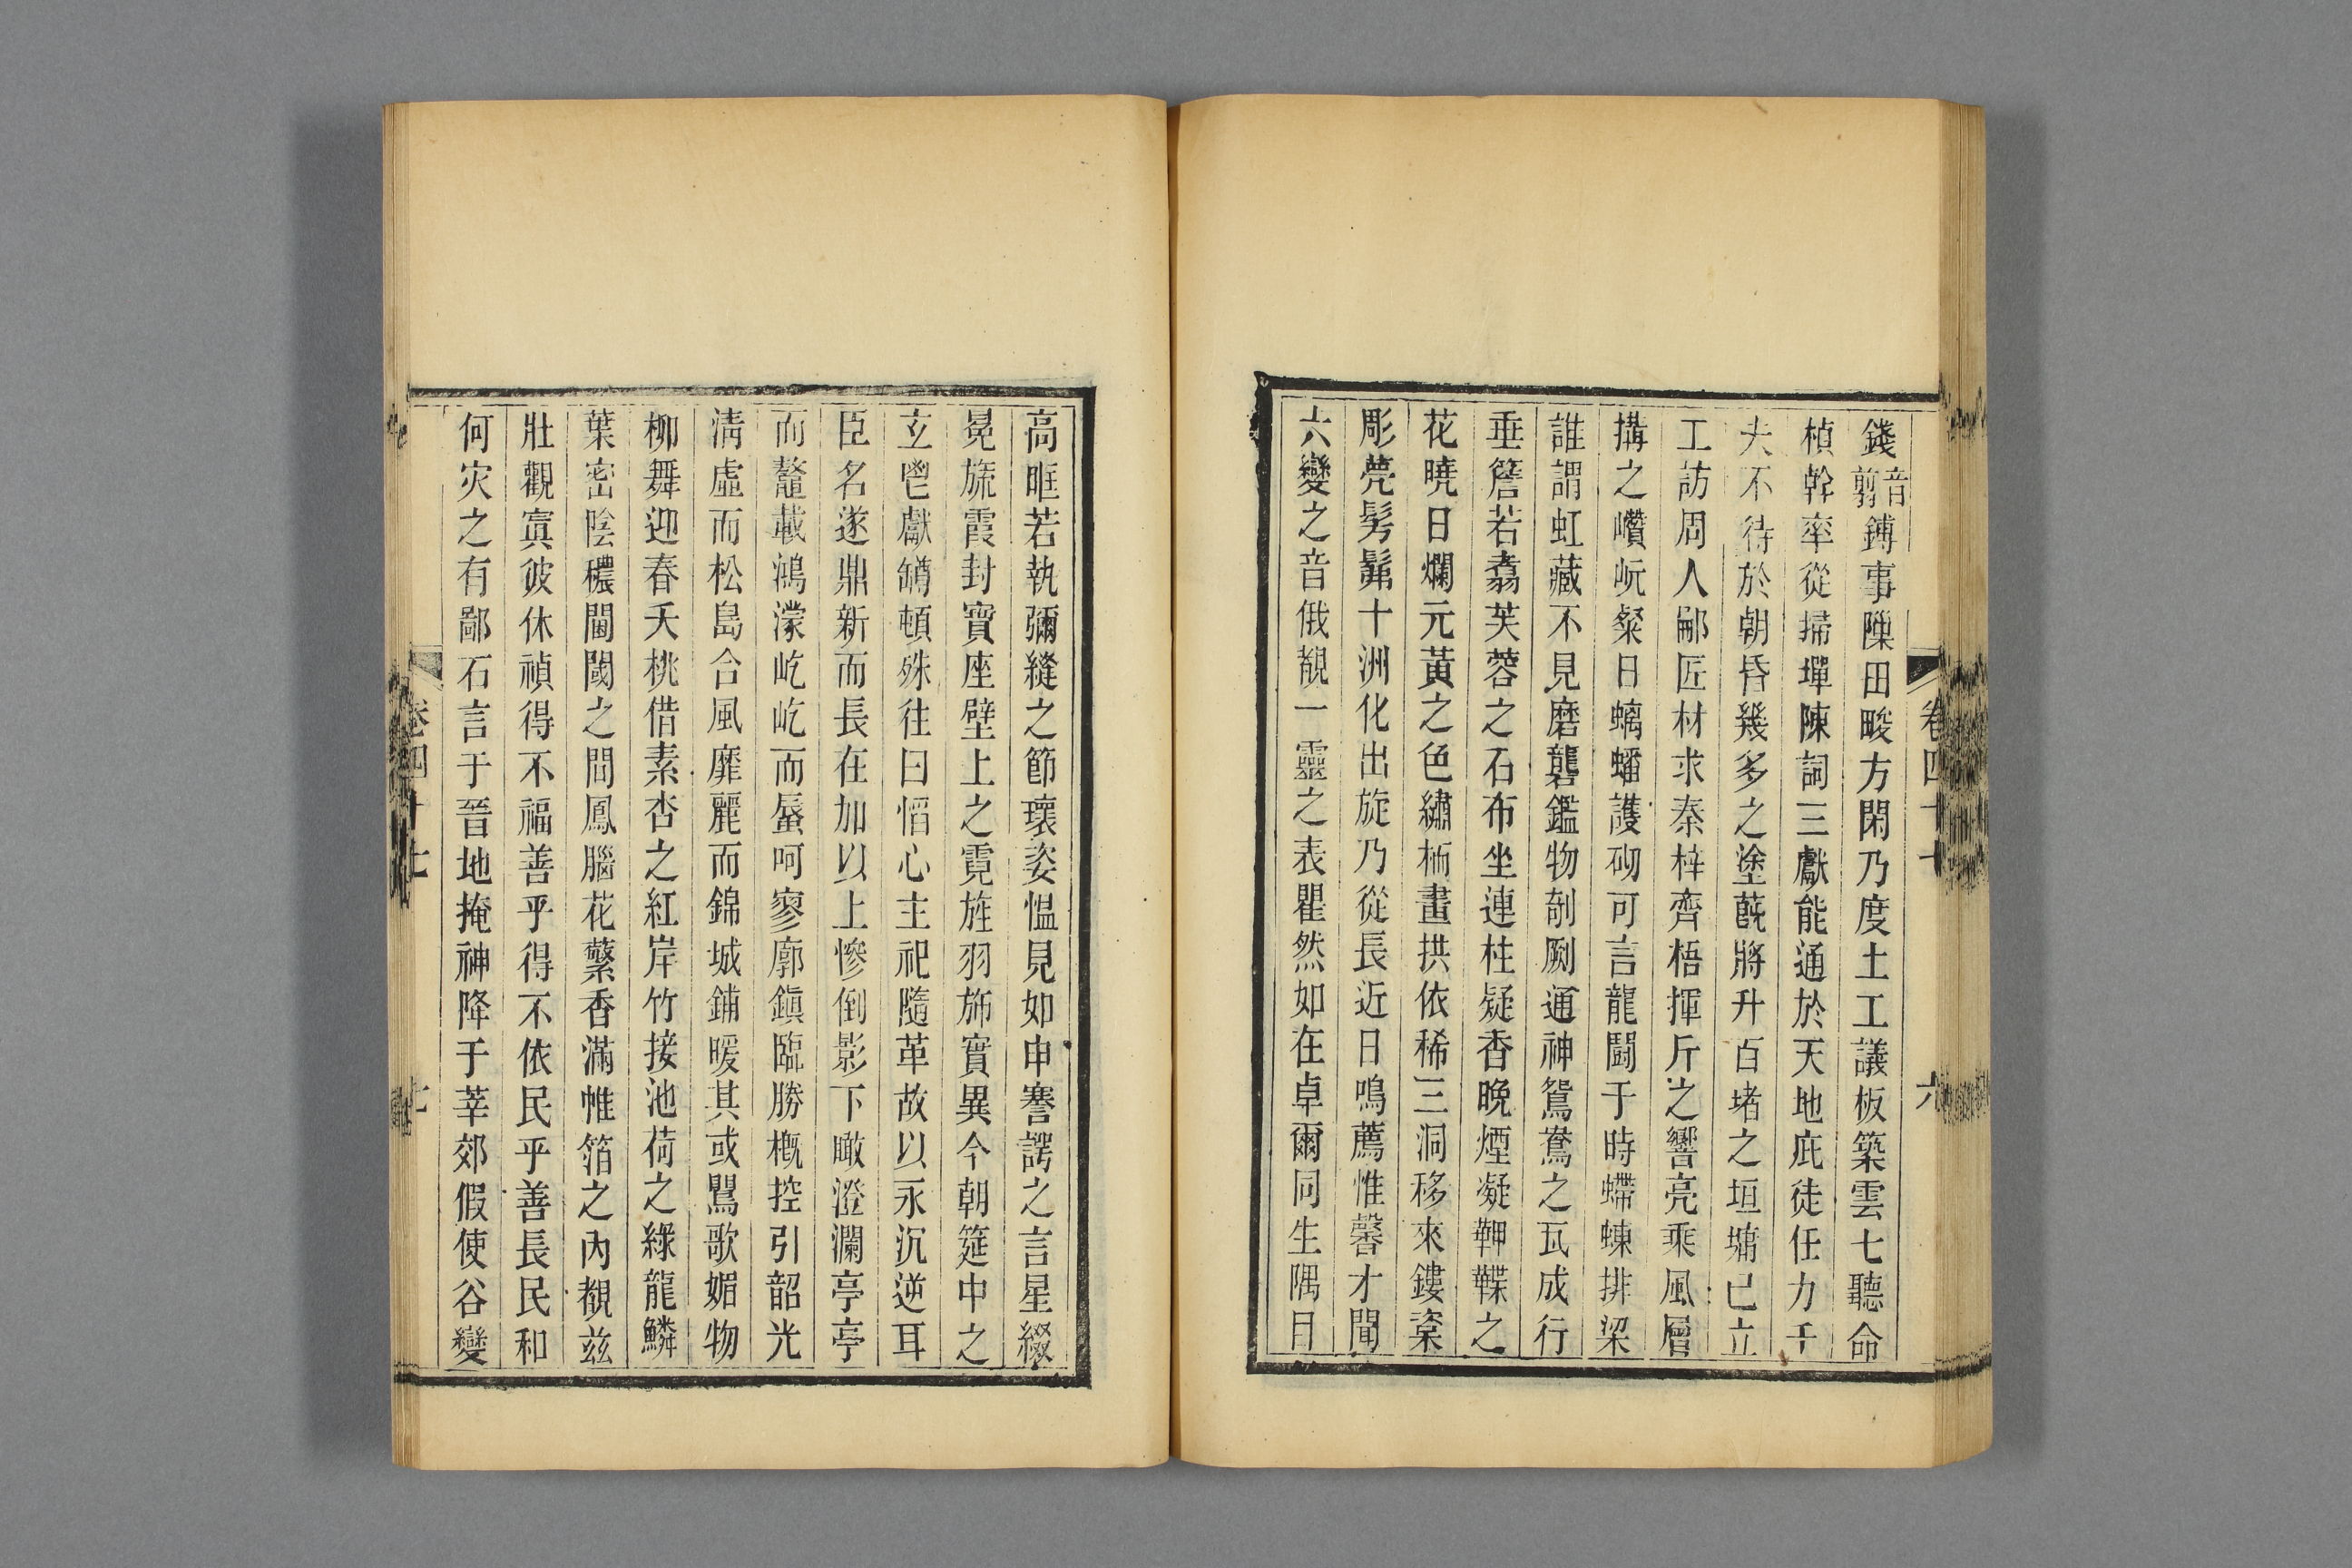 錢音翦鎛事隟田畯方閑乃度土工議板築雲七聽命
楨幹率從掃墠陳詞三獻能通於天地庇徒任力千
夫不待於朝昏幾多之塗蔇將升百堵之垣墉已立
工訪周人郮匠材求秦梓齊梧揮斤之響亮乘風層
搆之巑岏粲日螭蟠護砌可言龍鬪于時螮蝀排梁
誰謂虹藏不見磨礱鑑物剞劂通神鴛鴦之瓦成行
垂簷若翥芙蓉之石布坐連柱疑香晚煙凝鞞鞢之
花曉日爛元黃之色繡栭畫拱依稀三洞移來鏤楶
彫甍髣髴十洲化出旋乃從長近日鳴薦惟馨才聞
六變之音俄覩一靈之表瞿然如在卓爾同生隅目
卷四十七
六
高眶若執彌縫之節瓌姿愠見如申謇諤之言星綴
冕旒霞封寶座壁上之霓旌羽斾實異今朝筵中之
玄鬯獻罇頓殊往日慆心主祀隨革故以永沉逆耳
臣名遂鼎新而長在加以上慘倒影下瞰澄瀾亭亭
而鼇載鴻濛屹屹而蜃呵寥廓鎭臨勝槪控引韶光
淸虛而松島合風靡麗而錦城鋪暖其或鷪歌媚物
柳舞迎春夭桃借素杏之紅岸竹接池荷之綠龍鱗
葉密陰穠閫閾之間鳳腦花蘩香滿帷箔之內覩兹
壯觀寘彼休禎得不福善乎得不依民乎善長民和
何灾之有鄙石言于晉地掩神降于莘郊假使谷變
卷四十七
七